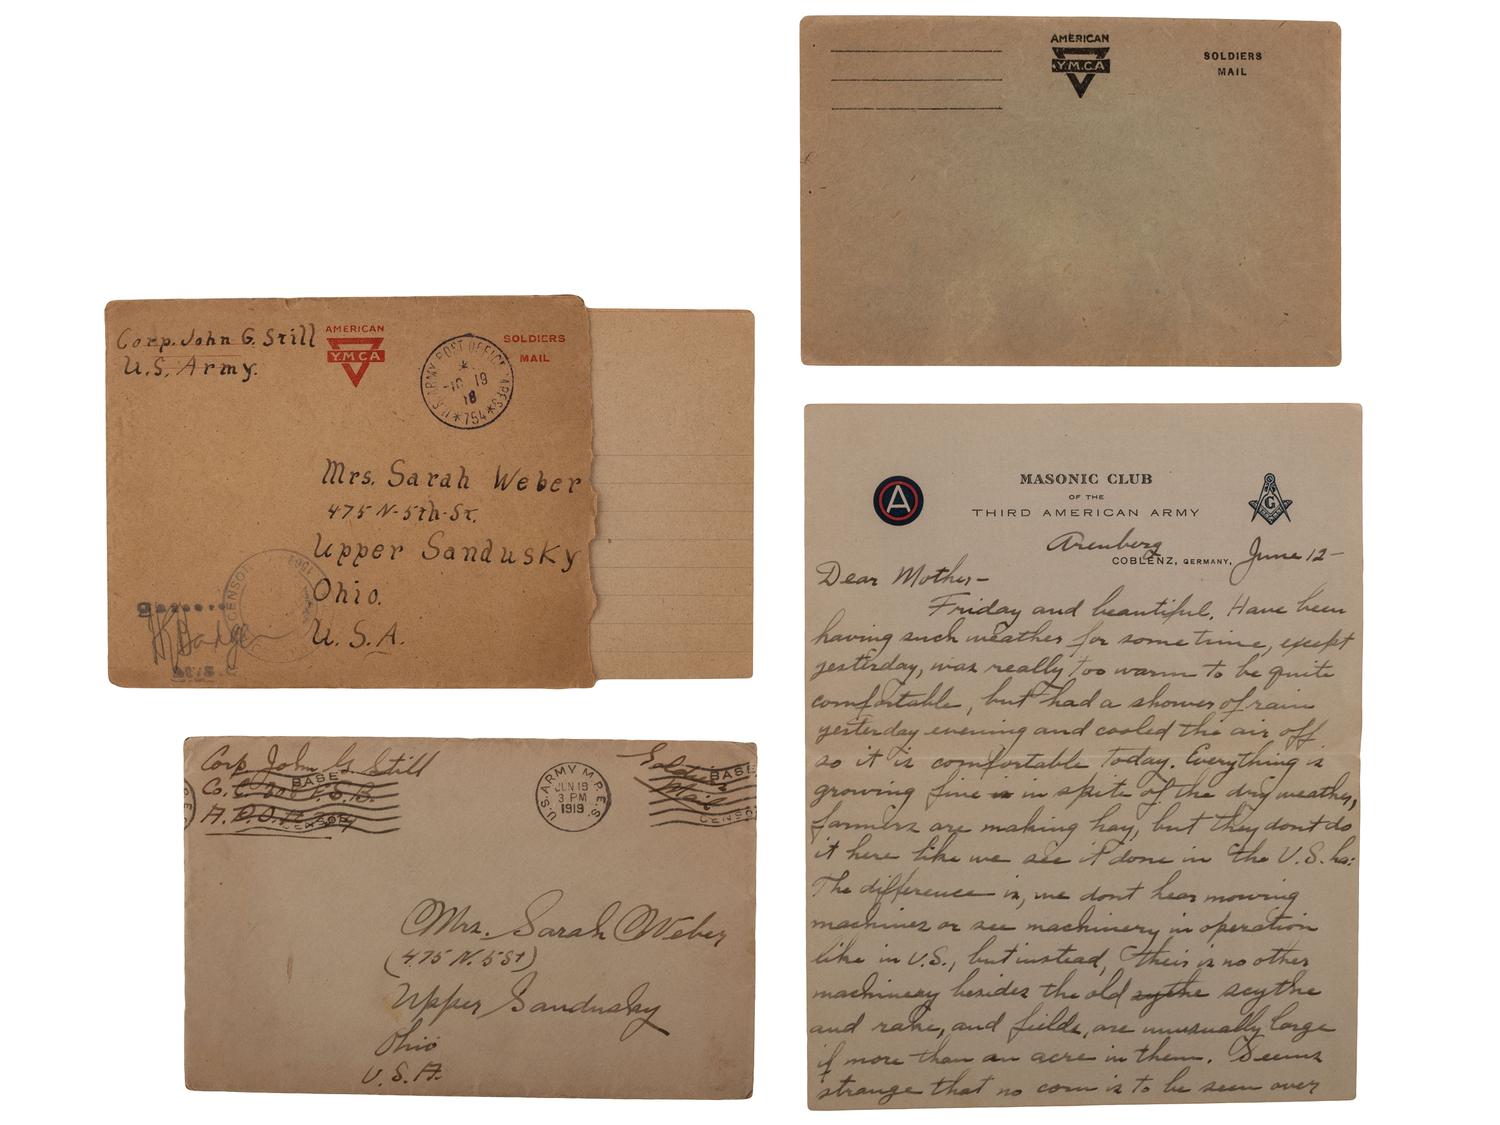 AMERICAN
Y.M.C.A
SOLDIERS
MAIL
Corp. John G. Still
U.S. Army.
AMERICAN
Y.M.C.A
SOLDIERS
MAIL
U.S. ARMY POST OFFICE
19
18
*754*
Mrs. Sarah Weber
475 N-5th-St.
Upper Sandusky
Ohio.
U. S. A.
Corp John G. Still
Co. C.
BASE
CENSOR
U.S. ARMY M.P.E.S.
JUN 19
3 PM
1919
Soldiers
Mail
BASE
Mrs. Sarah Weber
(475 N. 5 St)
Upper Sandusky
Ohio
U. S. A.
A
MASONIC CLUB
OF THE
THIRD AMERICAN ARMY
G
Arenberg
COBLENZ, GERMANY, June 12-
Dear Mother-
Friday and beautiful. Have been
having such weather for some time, except
yesterday, was really too warm to be quite
comfortable, but had a shower of rain
yesterday evening and cooled the air off
so it is comfortable today. Everything is
growing fine in in spite of the dry weather,
farmers are making hay, but they dont do
it here like we see it done in the U.S. ha:
The difference is, we dont hear mowing
machines or see machinery in operation
like in U.S., but instead, their is no other
machinery besides the old scythe scythe
and rake, and fields, are unusually large
if more than an acre in them. Seems
strange that no corn is to be seen over